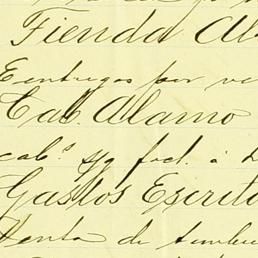 Tienda Al
Entregas por ve
Cab. Alamo
cab.s s/g fact. á
Gastos Escrito
Venta de timbre